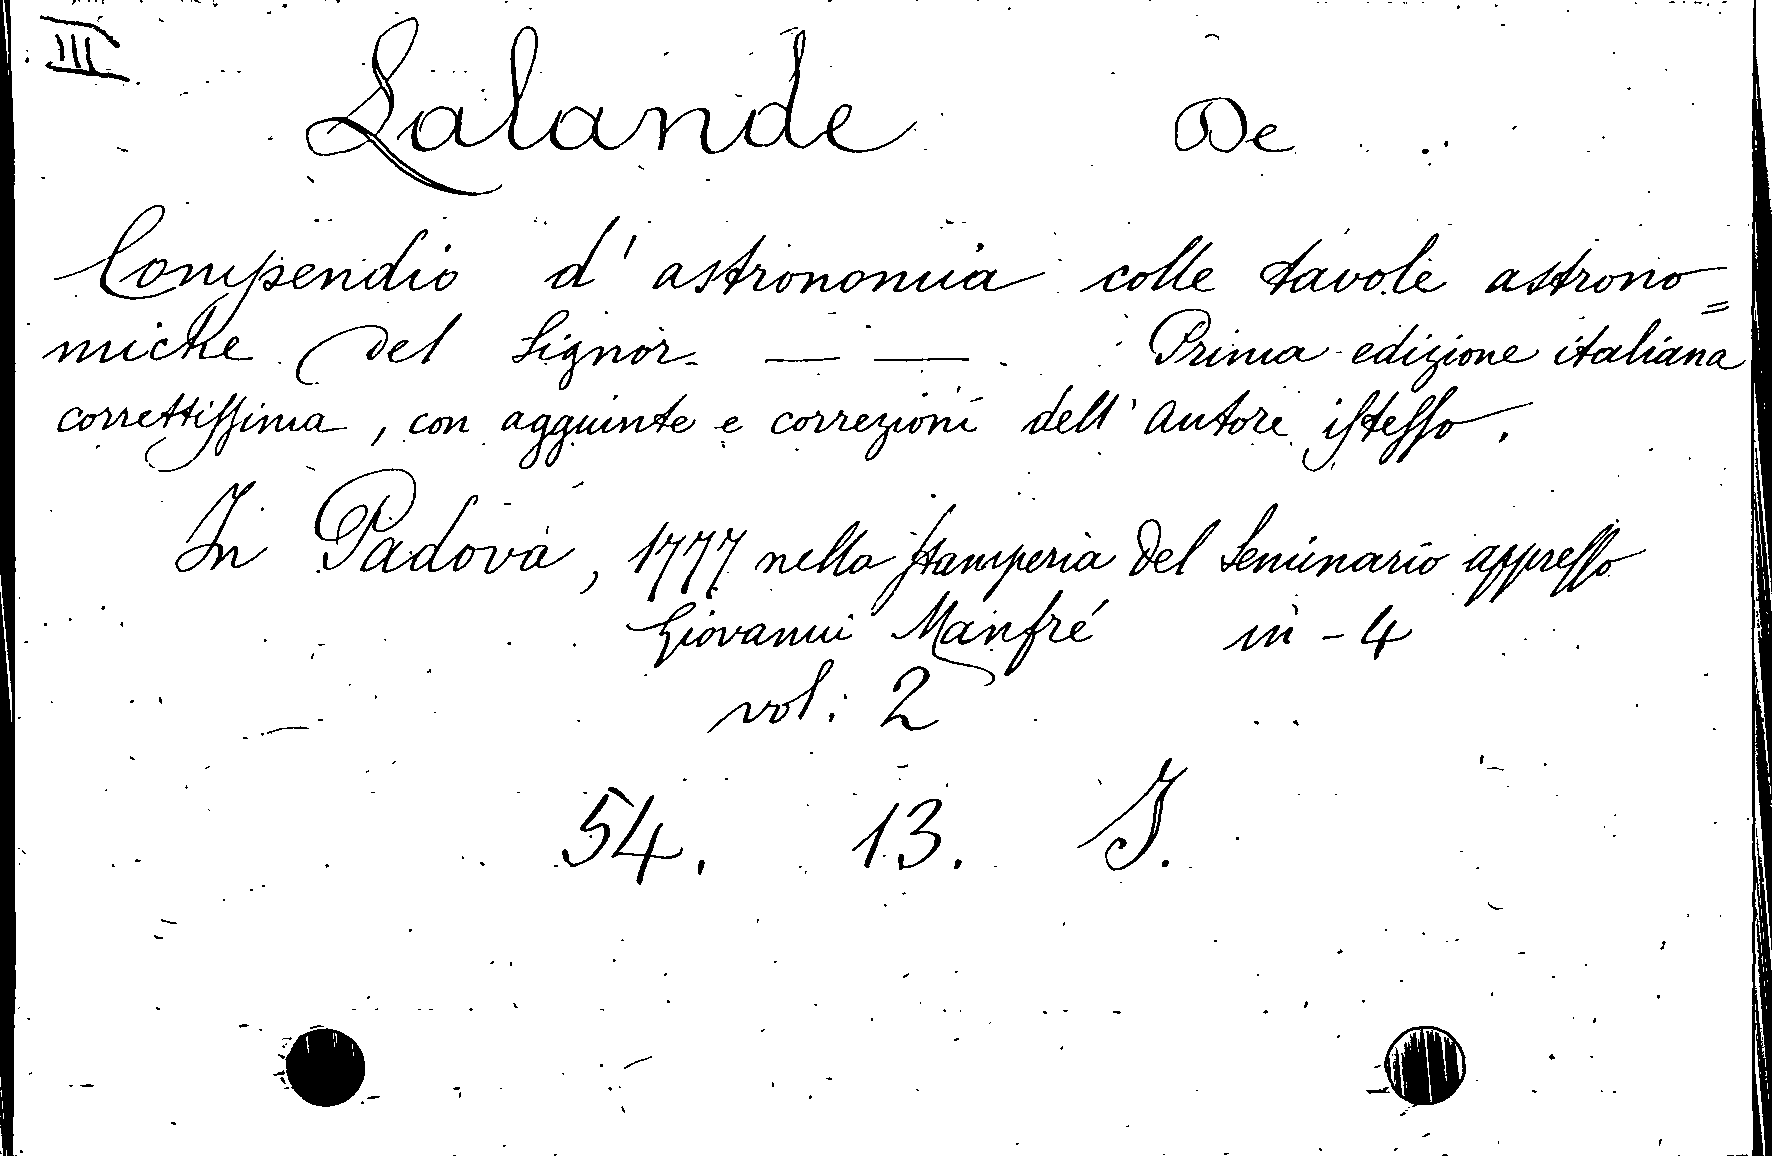 III
Lalande De
Compendio d'astronomia colle tavole astrono=
miche del Signor — — . Prima edizione italiana
correttiſſima, con aggiunte e correzioni dell'autore iſteſſo.
In Padova, 1777 nella ſtamperia del Seminario appreſſo
Giovanni Manfré in-4
vol: 2
54. 13. J.